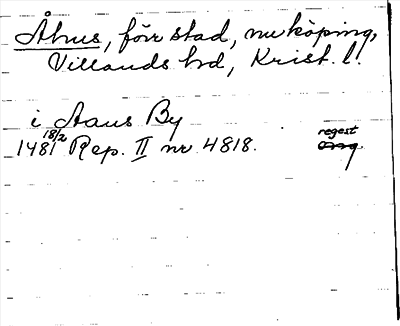 Åhus, förr stad, nu köping,
Villands hd, Krist. l.
i Aaus By
1481 18/2 Rep. II nr 4818. regest